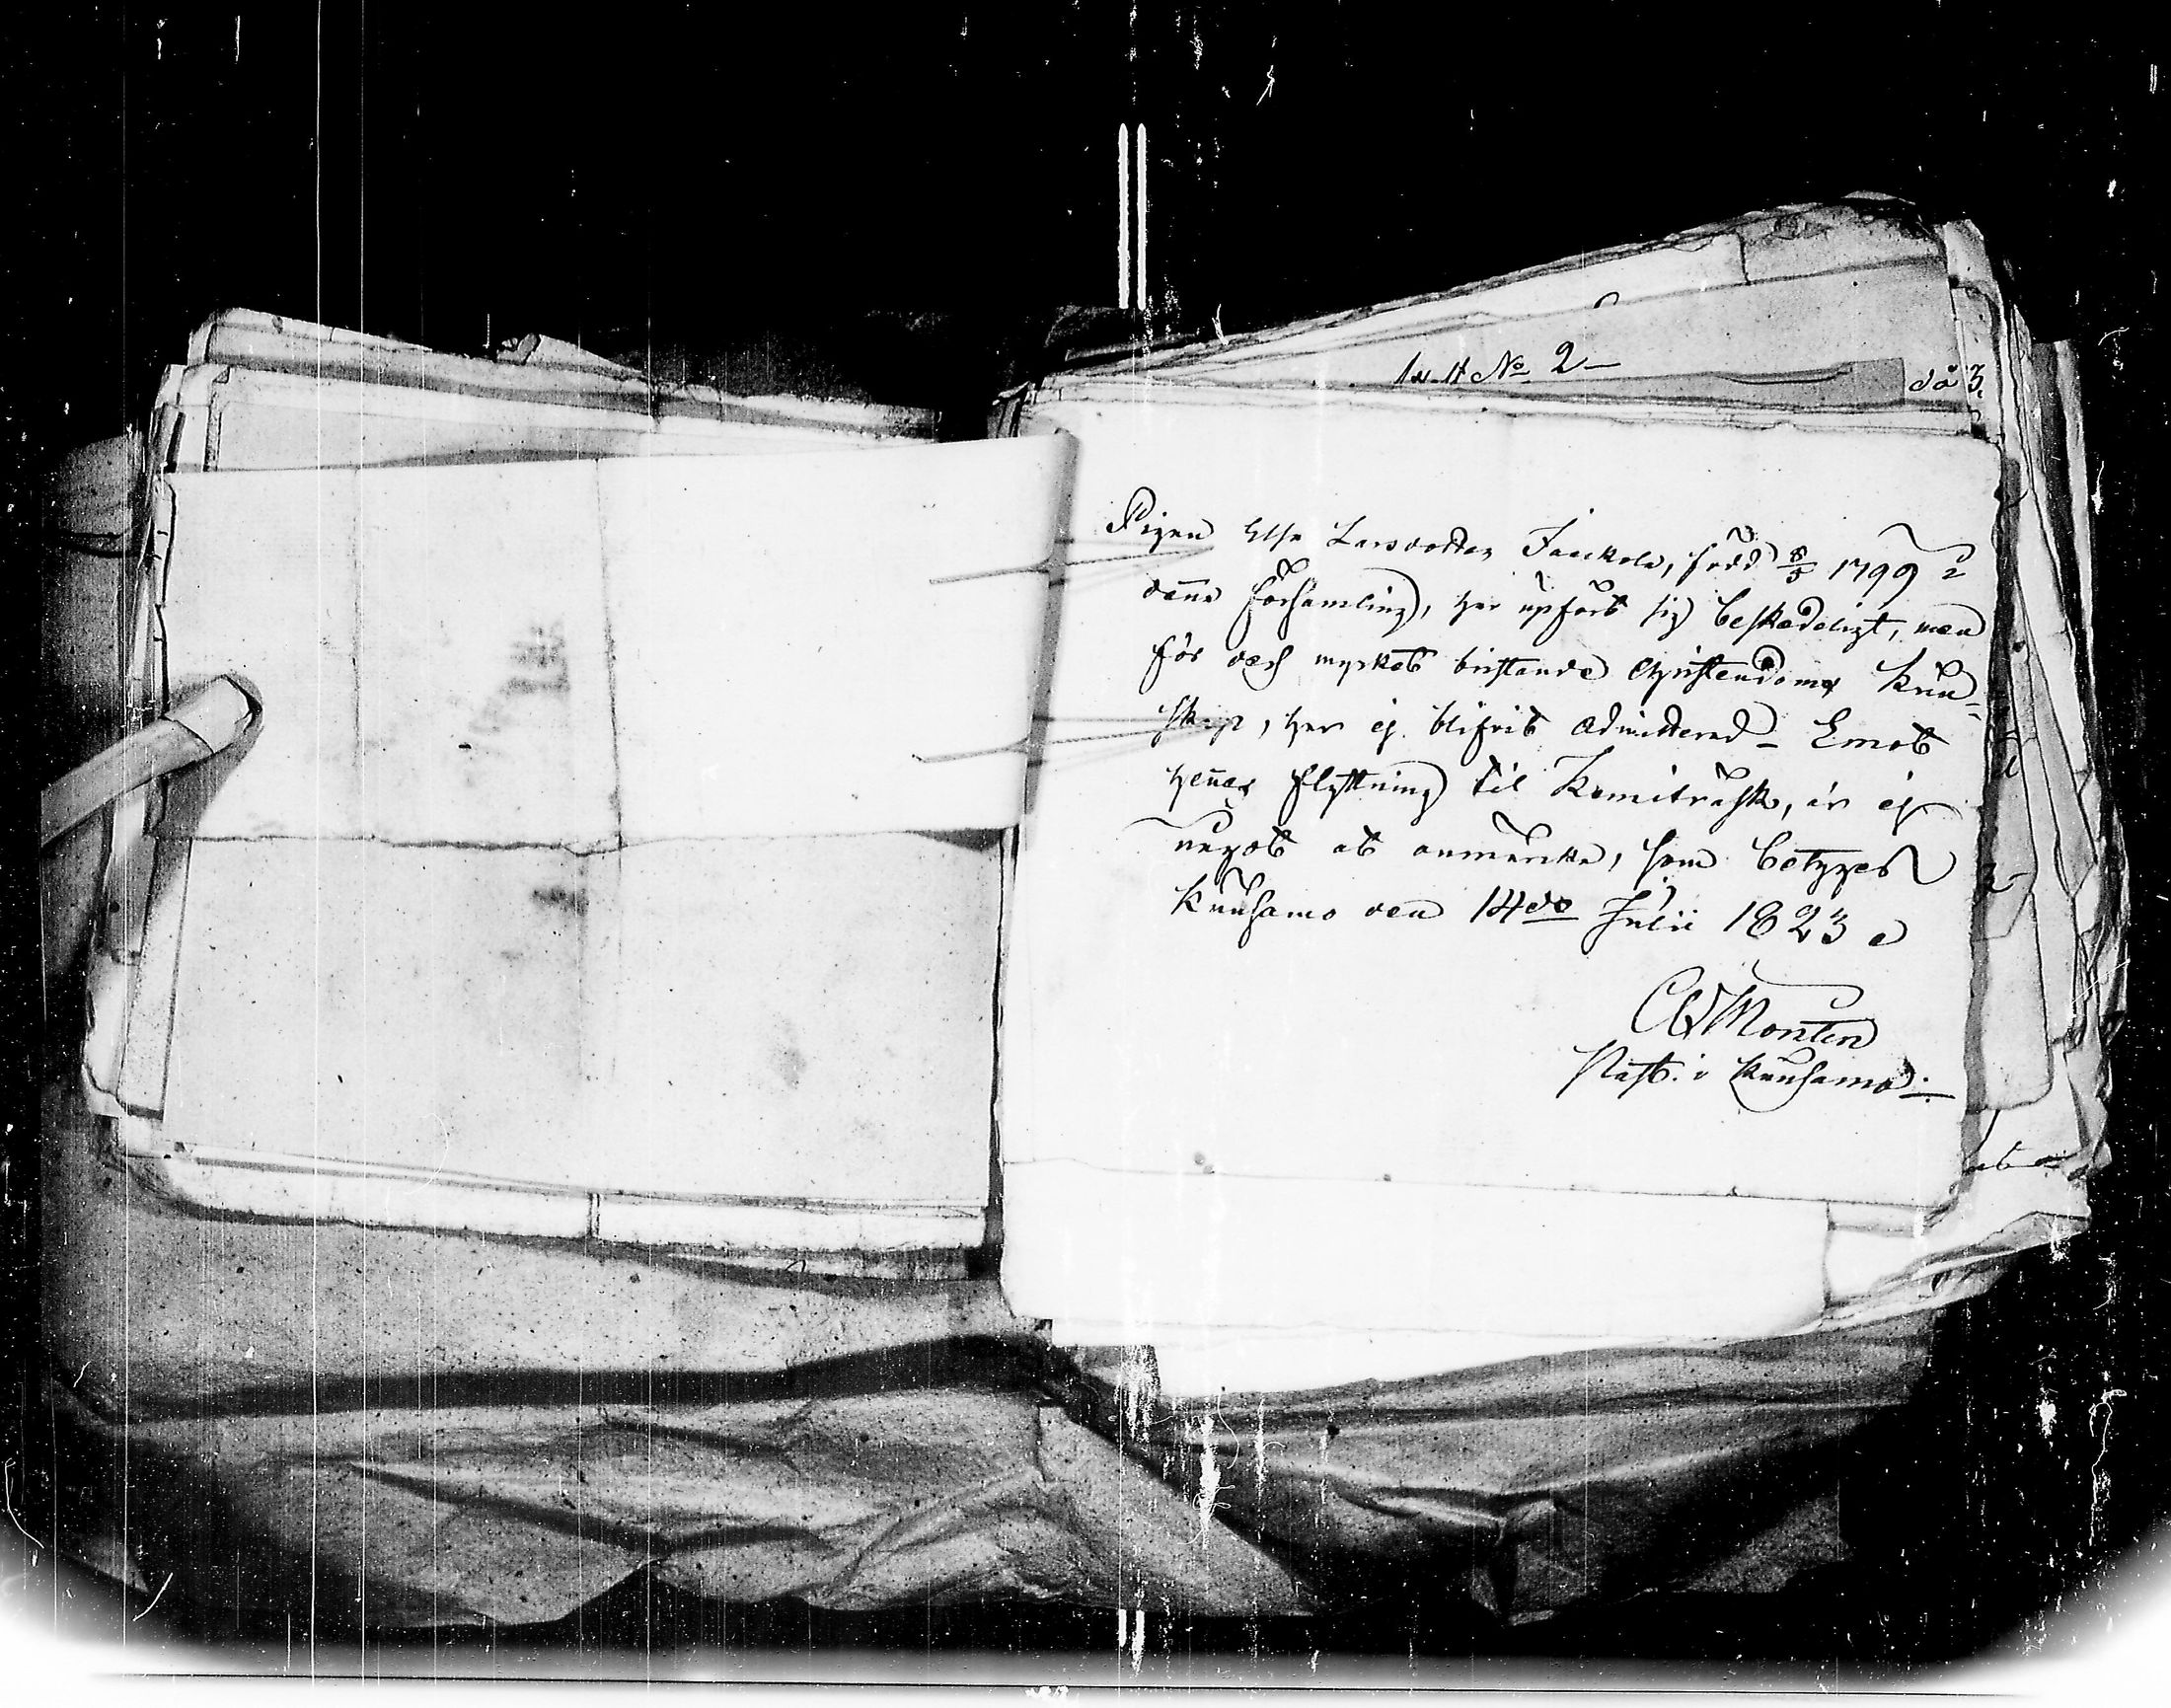 No 2
Pigan Elsa Larsdotter Jaakola, född 8/5 1799 i
denna Församling, har upfört sig beskedeligt, men
för dess myckeť bristande Christendoms kun-
skap, har ej blifvit admitterad - Emot
hennes flyttning til Kemiträsk, är ej
något at anmärcka, som betygas
Kuusamo den 14de Julii 1823
Monten
Past. i Kuusamo